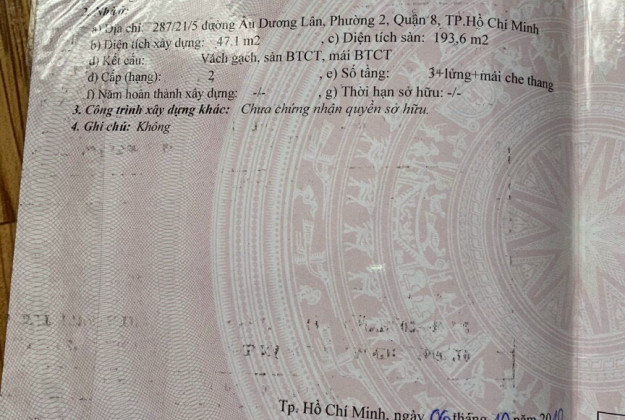 2. Nhà ở:
a) Địa chỉ: 287/21/5 đường Âu Dương Lân, Phường 2, Quận 8, TP.Hồ Chí Minh
b) Diện tích xây dựng: 47,1 m2 , c) Diện tích sàn: 193,6 m2
d) Kết cấu: Vách gạch, sàn BTCT, mái BTCT
đ) Cấp (hạng): 2 , e) Số tầng: 3+lửng+mái che thang
f) Năm hoàn thành xây dựng: -/- , g) Thời hạn sở hữu: -/-
3. Công trình xây dựng khác: Chưa chứng nhận quyền sở hữu.
4. Ghi chú: Không
Tp. Hồ Chí Minh, ngày 06 tháng 10 năm